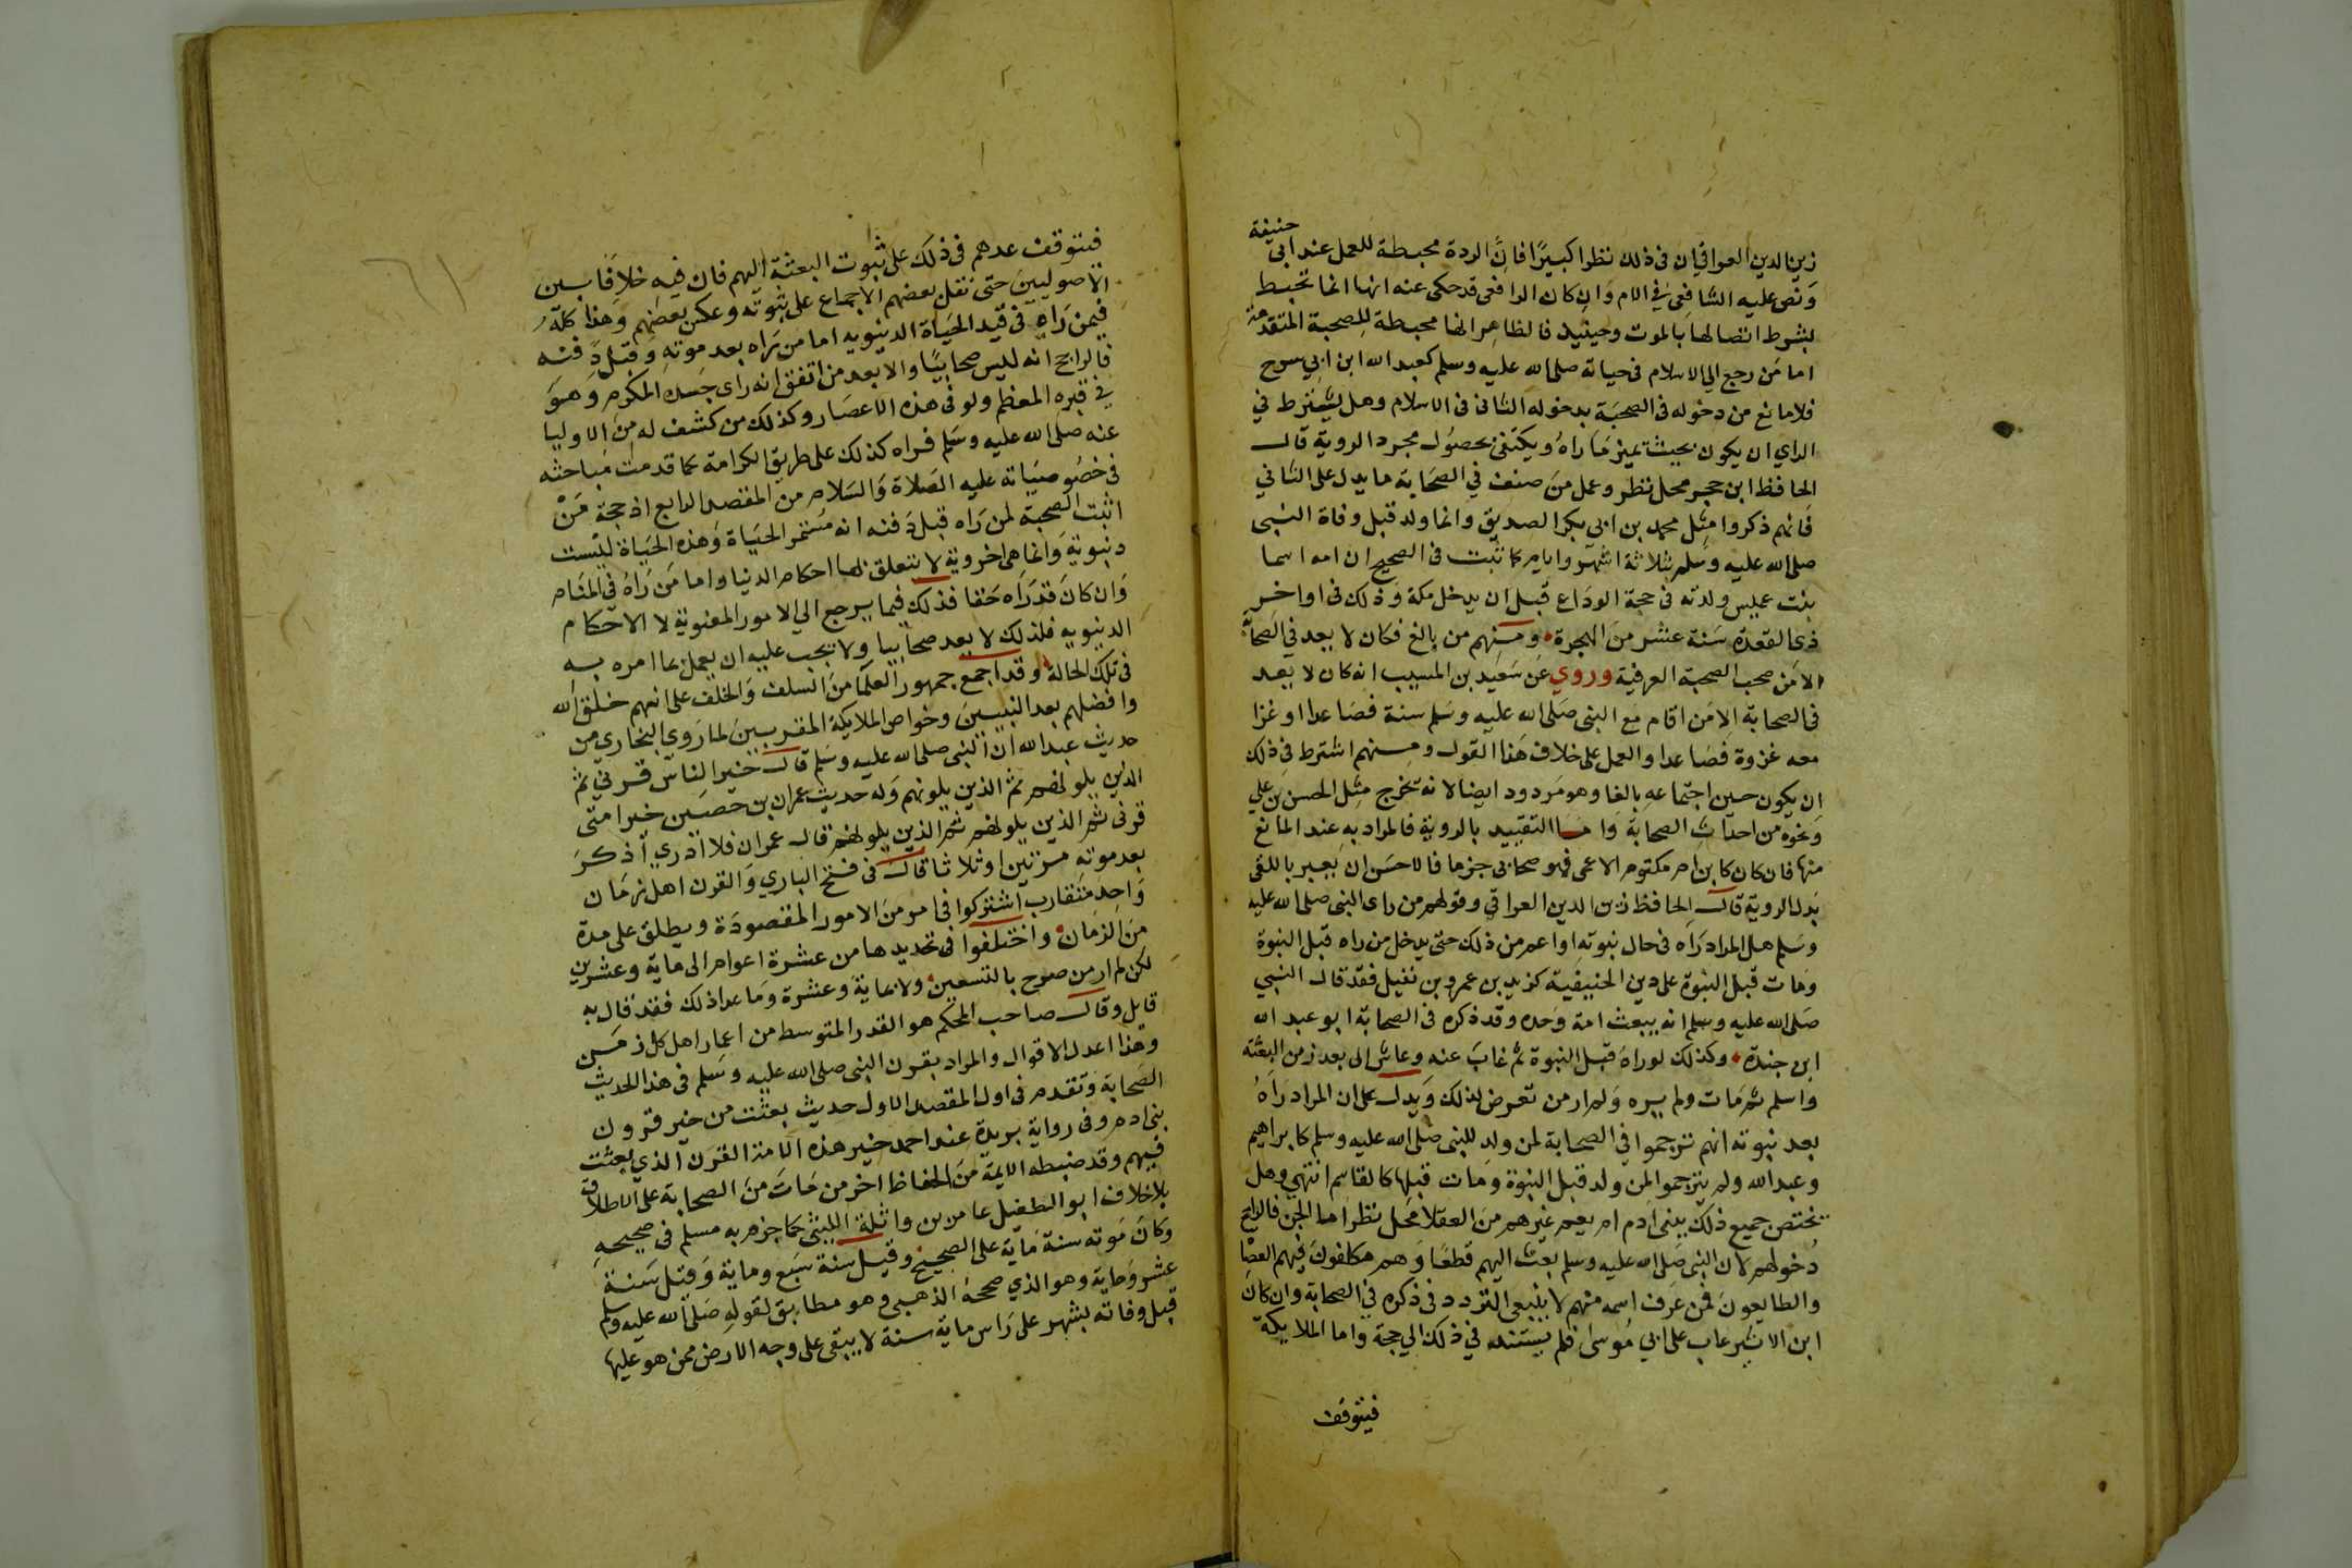 زين الدين العراقي ان في ذلك نظرا كبيرًا فانَّ الردة محبطة للعمل عند ابي حنيفة
وَنص عليه الشافعي في الام وَان كان الرافعي قد حكى عنه انها انما تحبط
بشرط اتصالها بالموت وحينيذ فالظاهر انها محبطة للصحبة المتقدمة
اما مَن رجع الي الاسلام في حياته صلى الله عليه وسلم كعبد الله ابن ابي سرح
فلا مانع من دخوله في الصحبَة بدخوله الثاني في الاسلام وهل يشترط في
الراي ان يكون بحيث تميز مَا راهُ ويكتفي بحصُول مجرد الروية قال
الحافظ ابن حجر محل نظر وعمل مَن صنف في الصحَابة ما يدل على الثاني
فَانهم ذكروا مثل محمد بن ابي بكر الصديق وانما ولد قبل وفاة النبي
صلى الله عليه وسَلم بثلاثة اشهر وايام كما ثبت في الصحيح ان امه اسما
بنت عميس ولدته في حجة الودَاع قَبل ان يدخل مكة وَذلك في اواخر
ذي القعدة سَنة عشر منَ الهجرة ومنهم من بالغ فكان لا يعد في الصحابَة
الا مَن صحب الصحبة العرفية وروي عن سَعيد بن المسيب انه كان لا يعد
في الصحابة الا مَن اقام مَع النبي صَلى الله عليه وسَلم سنة فصَاعدا او غزا
معه غزوة فصَاعدا والعمل على خلاف هَذا القول ومنهم اشترط في ذلك
ان يكون حين اجتماعه بالغا وهو مَردود ايضا لانه تخرج مثل الحسن بن علي
وَنحوه من احدَاث الصحابة وامَا التقييد بالروية فالمراد به عند المانع
منها فان كان كابن ام مكتوم الاعمى فهو صحابي جزما فالاحسَن ان يعبر باللقي
بَدل الروية قال الحافظ زين الدين العراقي وقولهم من راى النبي صلى الله عليه
وسَلم هل المراد رَاه في حال نبوته او اعم من ذلك حتى يدخل من راه قبل النبوة
ومَات قبل النبوة على دين الحنيفية كزيد بن عمرو بن نفيل فقد قال النبي
صَلى الله عليه وسلم انه يبعث امة وَحده وقد ذكره في الصحابة ابو عبد الله
ابن مندة وكذلك لو راهُ قبل النبوة ثم غابَ عنه وعاش الى بعد زمن البعثة
واسلم ثم مَات ولم يره وَلم ار من تعرض لذلك وَيدل على ان المراد رَاهُ
بعد نبوته انهم ترجموا في الصحابة لمن ولد للنبي صَلى الله عليه وسلم كابراهيم
وعبد الله ولم يترجموا لمن ولد قبل النبوة وَمات قبلها كالقاسم انتهي وهل
يختص جميع ذلك ببني ادم ام يعم غيرهم منَ العقلا محَل نظر اما الجن فالراجح
دُخولهم لان النبي صَلى الله عليه وسلم بعث اليهم قطعًا وَهم مكلفونَ فيهم العصَاة
والطايعونَ فمن عَرف اسمه منهم لا ينبغي التردد في ذكره في الصحابة وان كانَ
ابن الاثير عاب على ابي مُوسى فلم يستند في ذلك الي حجة واما الملايكة
فيتوقف
فيتوقف عدهم في ذلك على ثبوت البعثة اليهم فان فيه خلافا بين
الاصوليين حتى نقل بعضهم الاجماع على ثبوته وعكس بعضهم وَهذا كله
فيمن رَاه في قيد الحيَاة الدنيويه اما من رَاه بعد موته وَقبل دَفنه
فالراجح انه ليس صحابيًا والا بعد من اتفق انه راى جسده المكرم وَهوَ
في قبره المعظم ولو في هذه الاعصَار وكذلك من كشف له من الاوليا
عنه صلى الله عليه وسَلم فراه كذلك على طريق الكرامة كما قدمت مباحثه
في خصُوصيَاته عليه الصَلاة وَالسَلام من المقصد الرابع اذ حجة مَنْ
اثبت الصحبة لمن رَاه قبل دَفنه انه مستمر الحيَاة وهذه الحيَاة ليْست
دنيوية وَانما هي اخروية لا تتعلق بها احكام الدنيا واما مَن رَاهُ في المنَام
وَان كانَ قد رَاه حَقا فذلك فيما يرجع الي الامور المعنوية لا الاحكام
الدنيويه فلذلك لا يعد صحابيا ولا يجب عليه ان يعمل بما امره به
في تلك الحالة وقد اجمع جمهور العلمآ من السلف وَالخلف على انهم خير خلق الله
وافضلهم بعد النبيينَ وخواص الملايكة المقربينَ لما رَوي البخاري من
حديث عبد الله ان النبي صلى الله عليه وسَلم قال خير الناس قرني ثم
الذين يلونهم ثم الذين يلونهم وَله حديث عمران بن حصين خير امتى
قرني ثم الذين يلونهم ثم الذين يلونهم قال عمران فلا ادري اَذكرَ
بعد موته مرتين او ثلاثا قال في فتح الباري وَالقرن اهل زمَان
وَاحد متقارب اشتركوا في امر منَ الامور المقصودَة ويطلق على مدة
منَ الزمَان واختلفوا في تحديدها من عشرة اعوام الى ماية وعشرين
لكن لم ار من صرح بالتسعين ولا بماية وعشرة وَما عدا ذلك فقد قال به
قايل وقال صاحب المحكم هو القدر المتوسط من اعمار اهل كل زمَن
وهذا اعدل الاقوال والمراد بقرن النبي صلى الله عليه وسَلم في هذا الحديث
الصحابة وَتقدم في اول المقصد الاول حديث بعثت من خير قرون
بني ادم وفي رواية بريدة عند احمد خير هذه الامة القرن الذي بعثت
فيهم وقد ضبطه الايمة منَ الحفاظ اخر من مَات منَ الصحابة على الاطلاق
بلا خلاف ابو الطفيل عامر بن واثلة الليثي كما جزم به مسلم في صحيحه
وكانَ مَوته سنة مَاية على الصحيح وقيل سنة سَبع وماية وَقيل سَنة
عشر وَماية وهو الذي صححهُ الذهبي وهو مطابق لقوله صَلى الله عليه وسلم
قبل وفاته بشهر على رَاس ماية سنة لا يبقى على وجه الارض ممن هو عليها